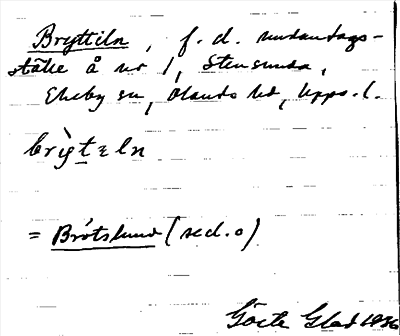 Bryttiln, f. d. undantags-
ställe å nr 1, Stensunda,
Ekeby sn, Olands hd, Upps. l.
brỳtəln
= Brötslund (sed. o)
Gösta Glad 1936